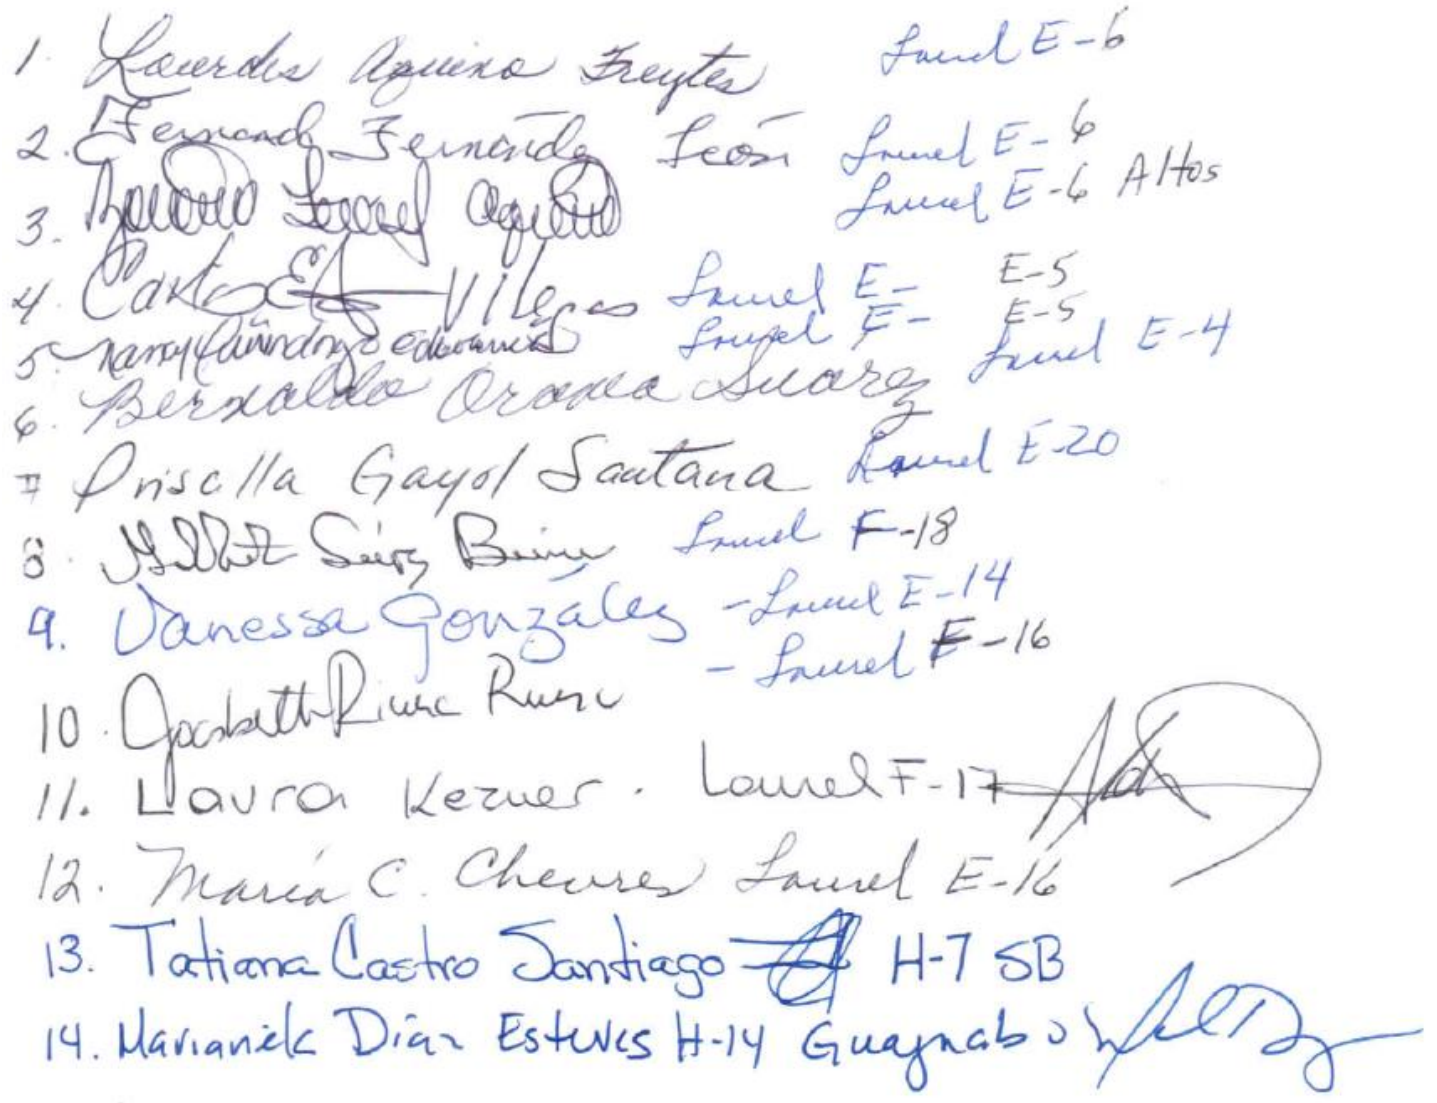 1. Lourdes Aquino Freytes Laurel E-6
2. Fernando Fernández León Laurel E-6
3. Aquino Laurel E-6 Altos
4. Carlos Villegas Laurel E- E-5
5. Nanny Laurel E- E-5
6. Bernaldo Orama Suarez Laurel E-4
7 Priscilla Gayol Santana Laurel E-20
8. Laurel F-18
9. Vanessa González - Laurel E-14
10. Rivera - Laurel F-16
11. Laura Kezner. Laurel F-17
12. María C. Cheveres Laurel E-16
13. Tatiana Castro Santiago H-7 SB
14. Marianiek Díaz Esteves H-14 Guaynabo